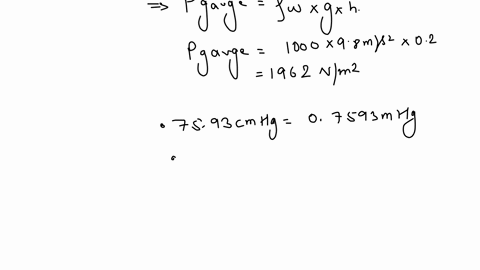 ⇒ Pgauge = ρw × g × h.
Pgauge = 1000 × 9.8 m/s² × 0.2
= 1962 N/m²
• 75.93 cm Hg = 0.7593 m Hg
•